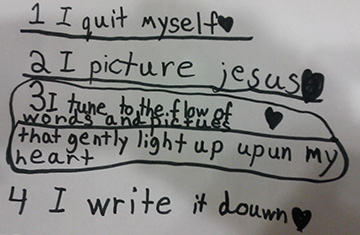 1 I quit myself
2 I picture jesus
3 I tune to the flow of
words and pictues
that gently light up upun my
heart
4 I write it douwn